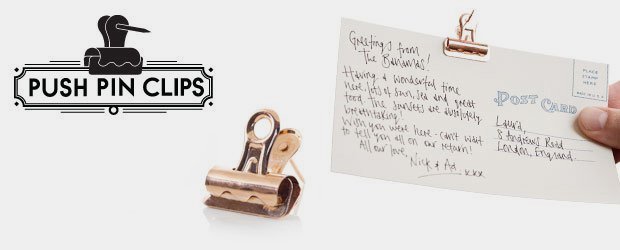 PUSH PIN CLIPS
Greetings from
The Bahamas!
Having a wonderful time
here, lots of sun, sea and great
food, the sunsets are absolutely
breathtaking!
Wish you were here - can't wait
to tell you all on our return!
All our love,
Nick & Ad xxx
POST CARD
PLACE
STAMP
HERE
Laura,
8 Andrews Road
London, England